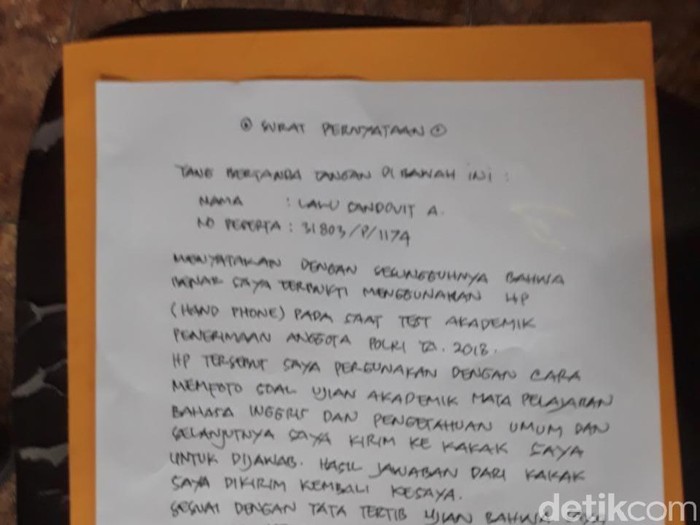 SURAT PERNYATAAN
YANG BERTANDA TANGAN DI BAWAH INI :
NAMA : LALU SANDOVIT A.
NO PESERTA : 31803/P/1174
MENYATAKAN DENGAN SESUNGGUHNYA BAHWA
BENAR SAYA TERBUKTI MENGGUNAKAN HP
(HAND PHONE) PADA SAAT TEST AKADEMIK
PENERIMAAN ANGGOTA POLRI TA. 2018.
HP TERSEBUT SAYA PERGUNAKAN DENGAN CARA
MEMFOTO SOAL UJIAN AKADEMIK MATA PELAJARAN
BAHASA INGGRIS DAN PENGETAHUAN UMUM DAN
SELANJUTNYA SAYA KIRIM KE KAKAK SAYA
UNTUK DIJAWAB. HASIL JAWABAN DARI KAKAK
SAYA DIKIRIM KEMBALI KESAYA.
SESUAI DENGAN TATA TERTIB UJIAN BAHWA
detikcom